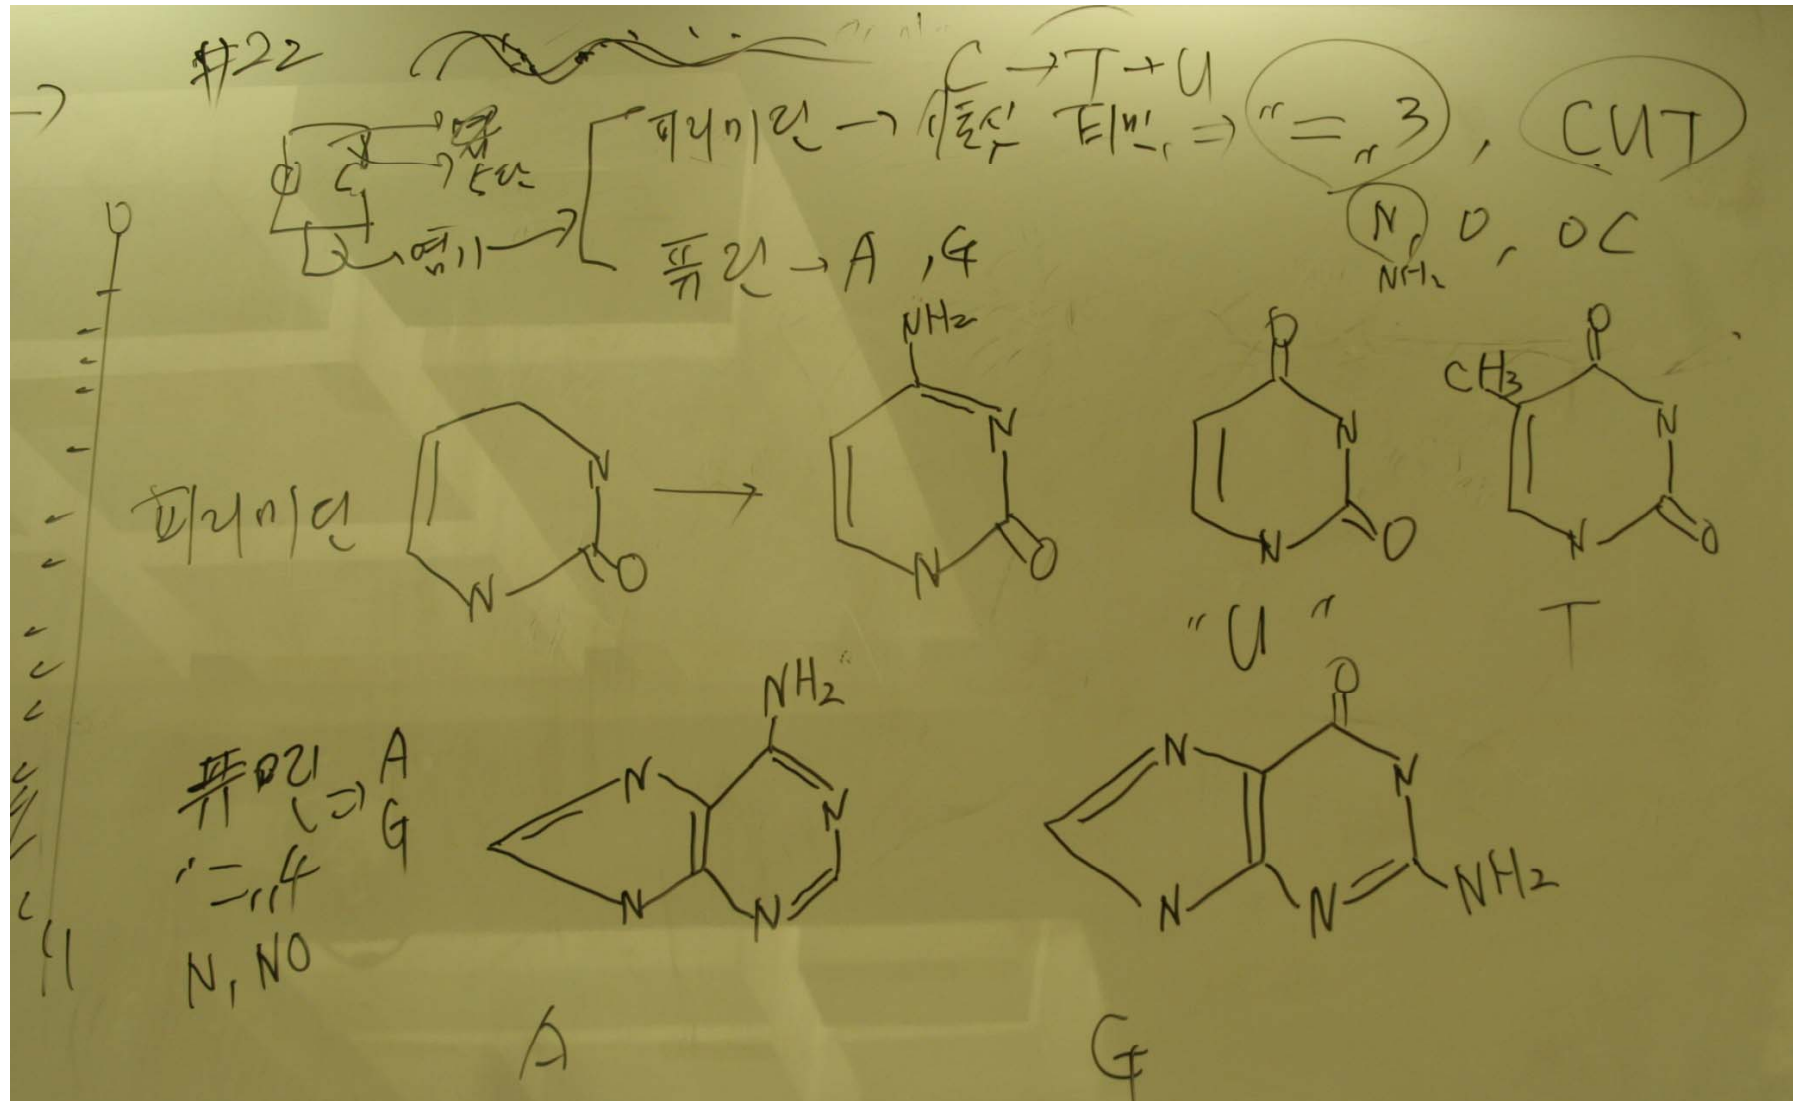 #22
C → T → U
피리미딘 → 시토신 티민, ⇒ "= „ 3, CUT
N, O, OC
NH₂
염기 → 퓨린 → A, G
피리미딘
NH₂
N
N
O
N
N
O
O
N
N
O
"U"
CH₃
O
N
N
O
T
퓨린 ⇒ A
G
"= „ 4
N, NO
NH₂
N
N
N
N
A
O
N
N
N
N
NH₂
G